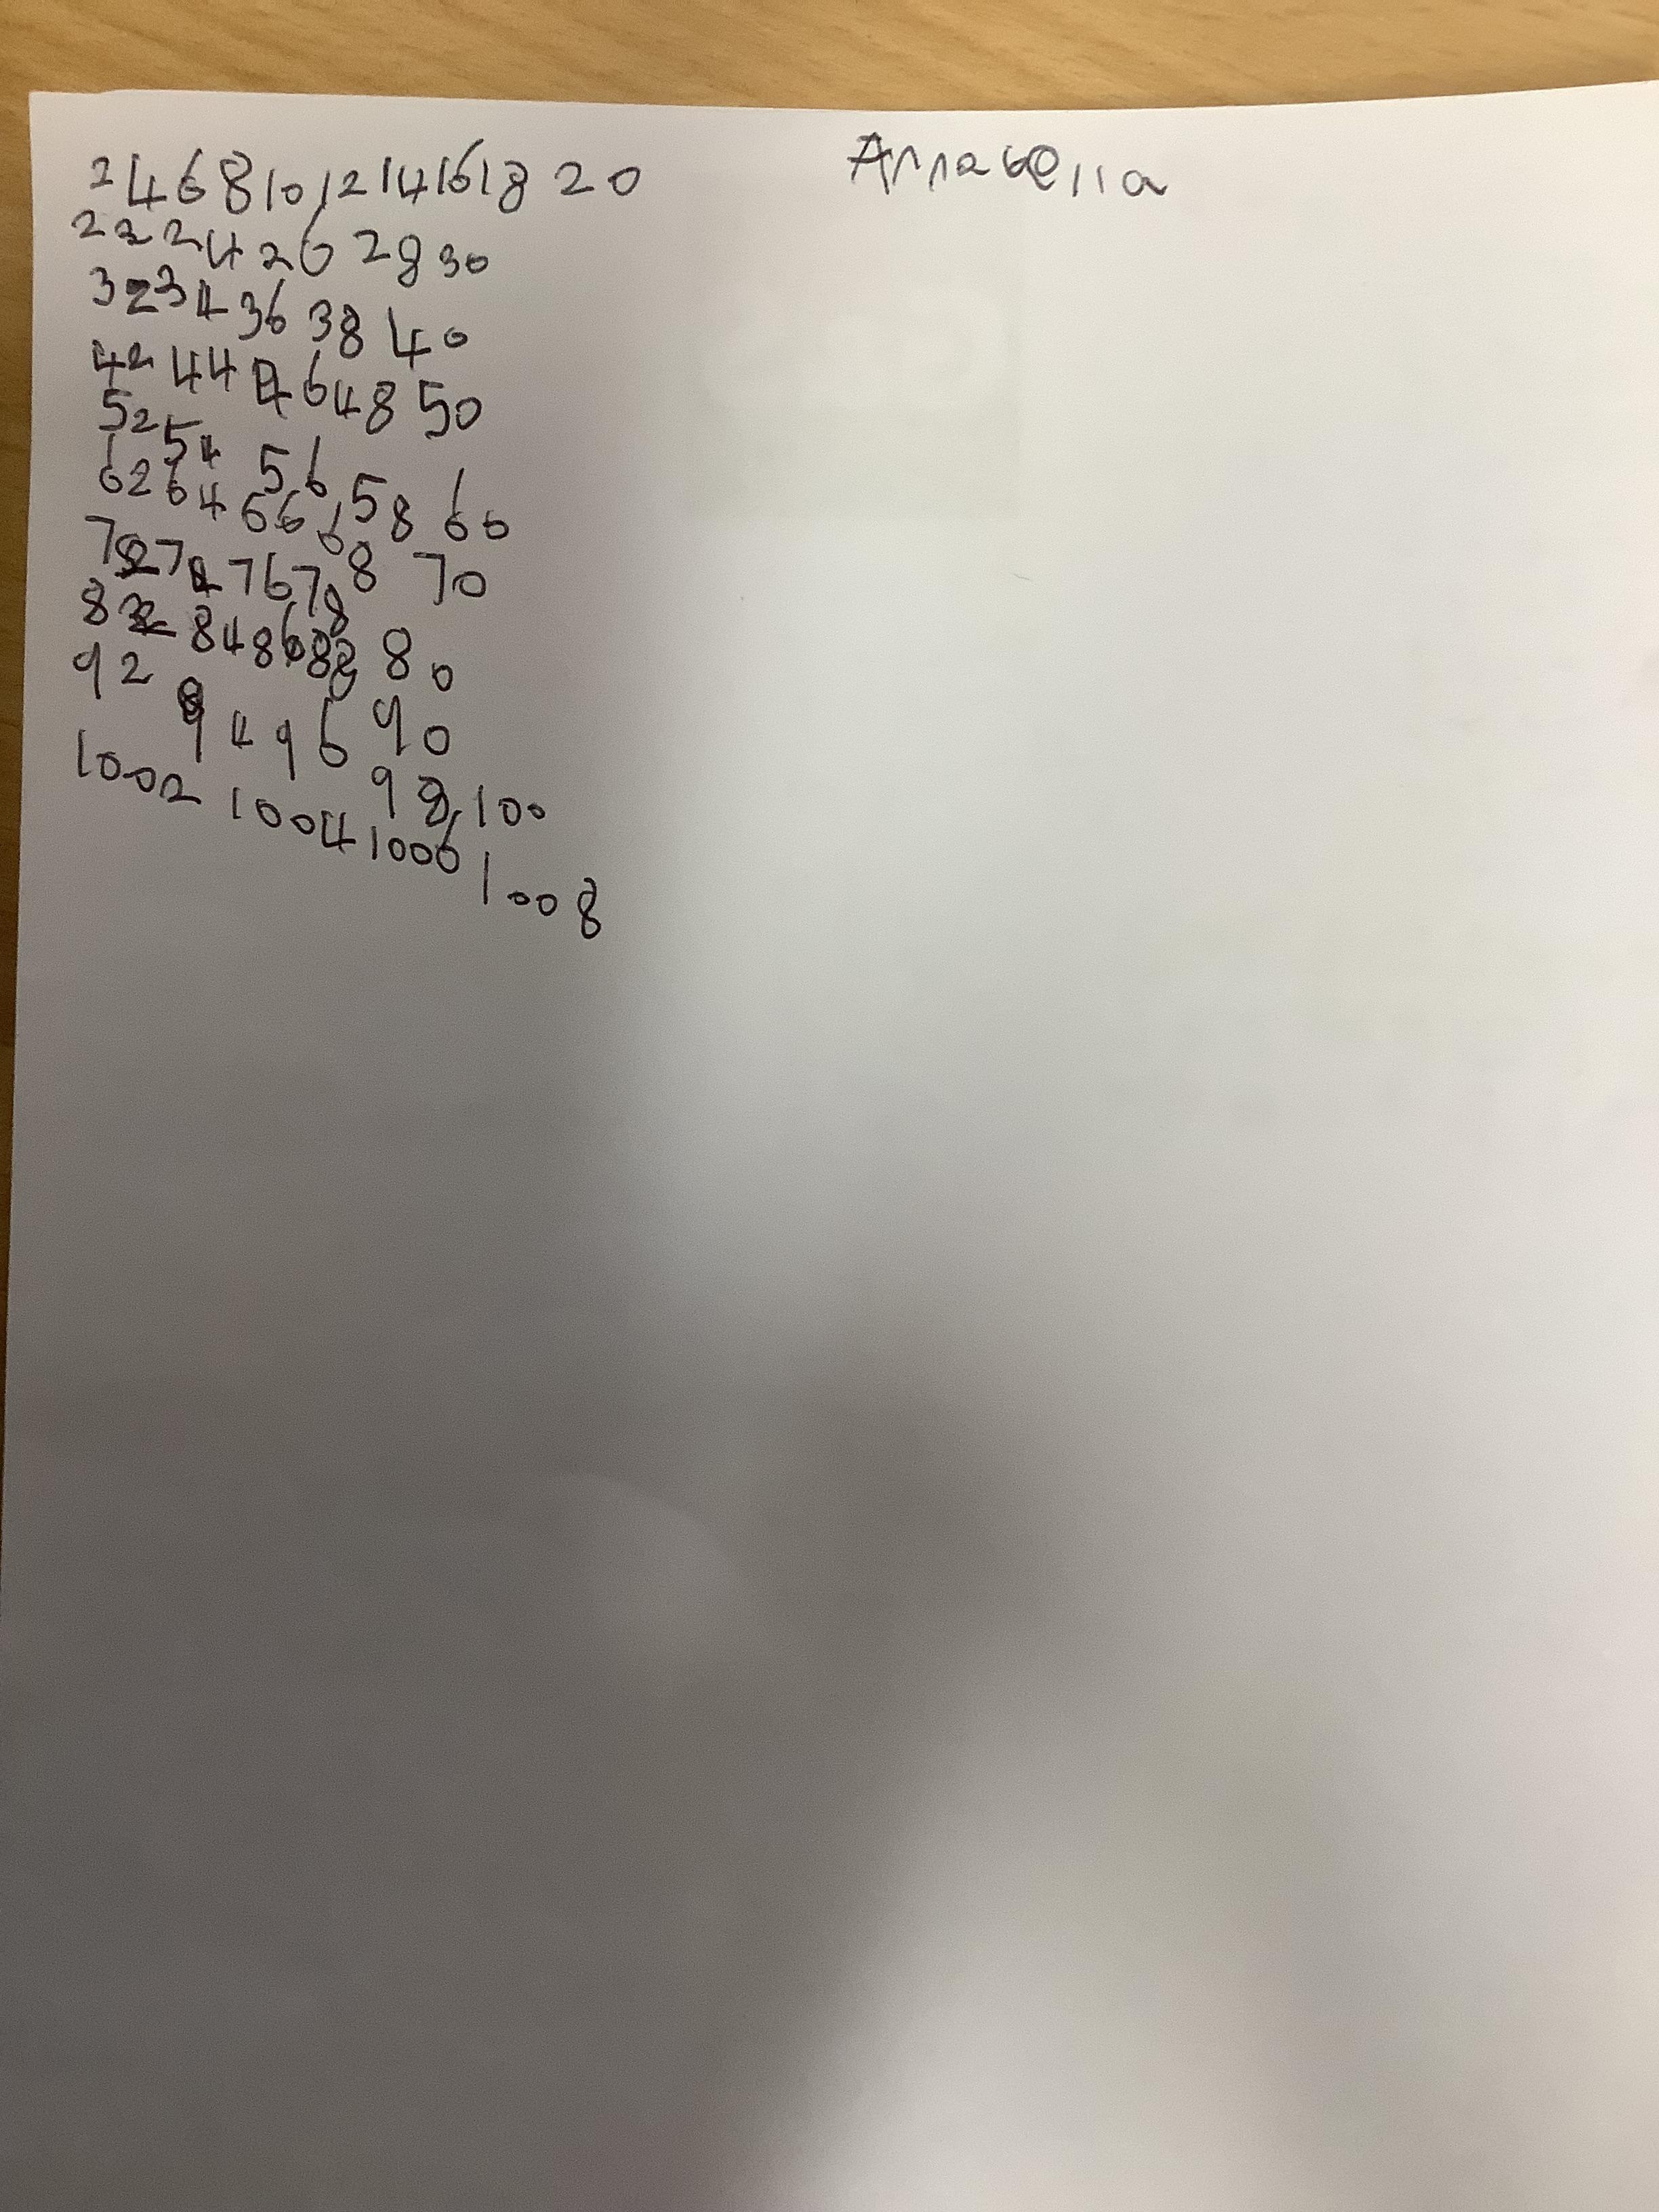 2 4 6 8 10 12 14 16 18 20 Annabella
22 24 26 28 30
32 34 36 38 40
42 44 46 48 50
52 54 56 58 60
62 64 66 68 70
72 74 76 78 80
82 84 86 88 90
92 94 96 98 100
1002 1004 1006 1008